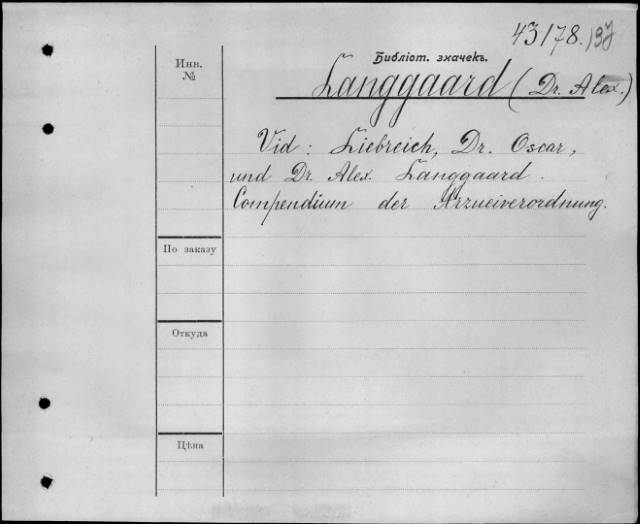 43178.
Библіот. значекъ.
Инв.
№
Langgaard (Dr. Alex.)
Vid: Liebreich, Dr. Oscar,
und Dr. Alex. Langgaard.
Compendium der Arzneiverordnung.
По заказу
Откуда
Цѣна